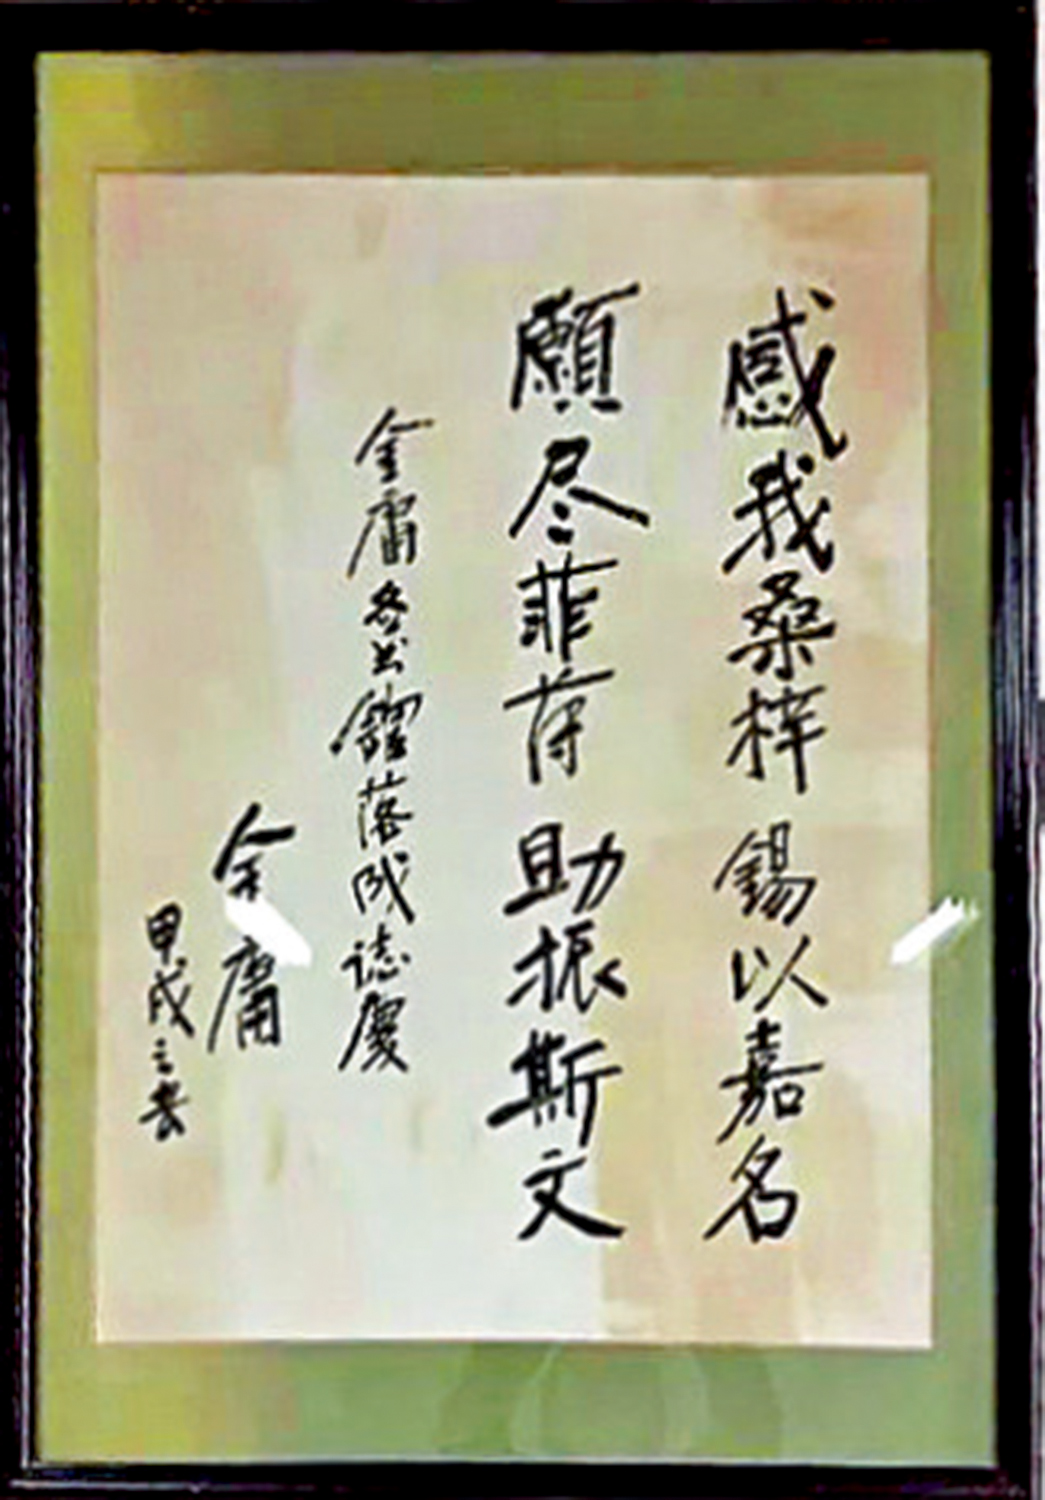 感我桑梓 錫以嘉名
願尽菲薄 助振斯文
金庸圖书館落成誌慶
金庸
甲戌之春